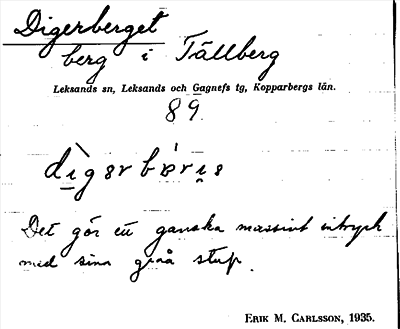 Digerberget
berg i Tällberg
Leksands sn, Leksands och Gagnefs tg, Kopparbergs län.
89.
Det gör ett ganska massivt intryck
med sina grå stup.
ERIK M. CARLSSON, 1935.